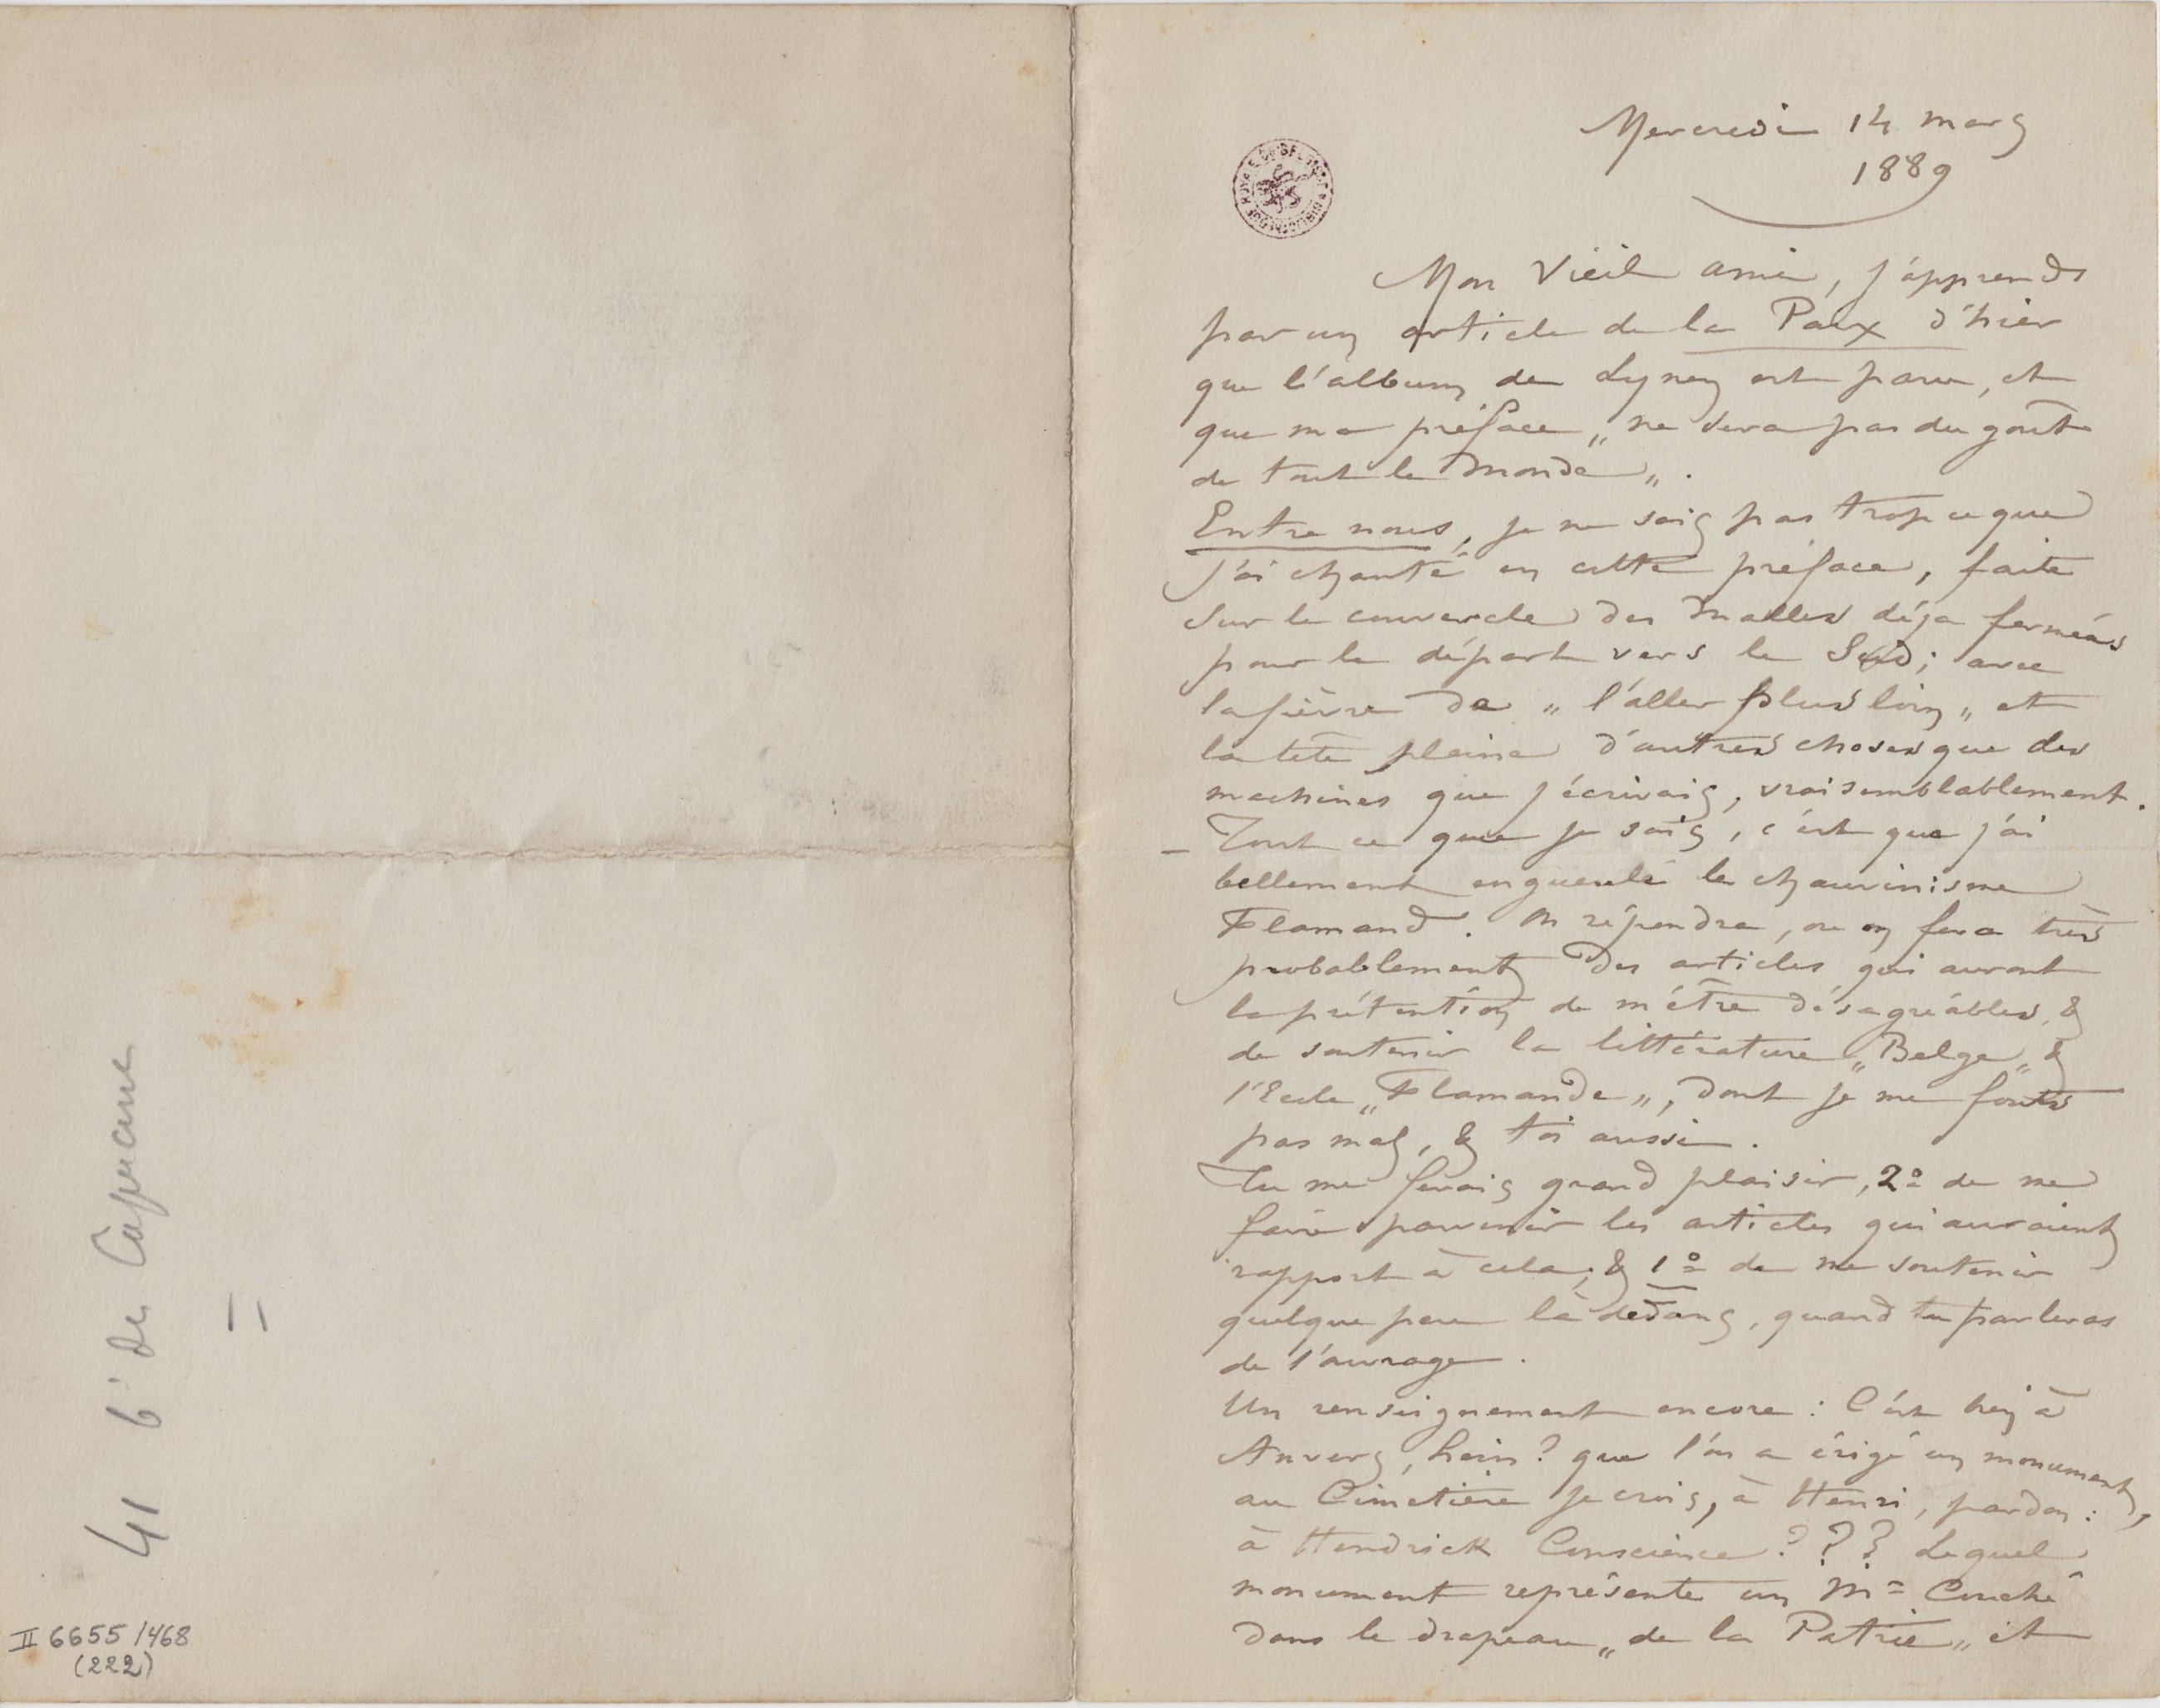 41 Bd des Capucines
II 6655/468
(222)
Mercredi 14 mars
1889
Mon Vieil ami, j'apprends
par un article de la Paix d'hier
que l'album de Lynen est paru, et
que ma préface „ ne sera pas du goût
de tout le monde „.
Entre nous, je ne sais pas trop ce que
j'ai chanté en cette préface, faite
sur le couvercle des malles déja fermées
pour le départ vers le Sud; avec
la fièvre de „ l'aller plus loin „ et
la tête pleine d'autres choses que des
machines que j'écrivais, vraisemblablement.
– Tout ce que je sais, c'est que j'ai
bellement engueulé le chauvinisme
Flamand. On répondra, ou on fera très
probablement des articles qui auront
la prétention de m'être désagréables, &
de soutenir la littérature „Belge„ &
l'Ecole „Flamande„, dont je me fouts
pas mal, & toi aussi.
Tu me ferais grand plaisir, 2º de me
faire parvenir les articles qui auraient
rapport à cela; & 1º de me soutenir
quelque peu là dedans, quand tu parleras
de l'ouvrage.
Un renseignement encore : C'est bien à
Anvers, hein? que l'on a érigé un monument,
au Cimetière je crois, à Henri, pardon :
à Hendrick Conscience ??? Lequel
monument représente un Mr Couché
dans le drapeau „de la Patrie„ et